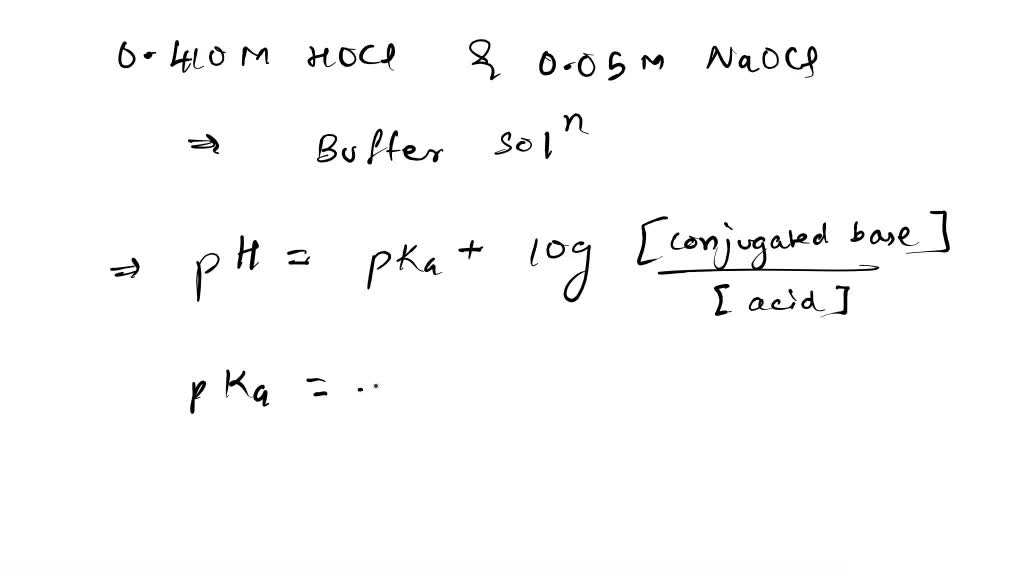 0.410 M HOCl & 0.05 M NaOCl
⇒ Buffer solⁿ
⇒ pH = pKa + log [conjugated base] / [acid]
pKa = ..